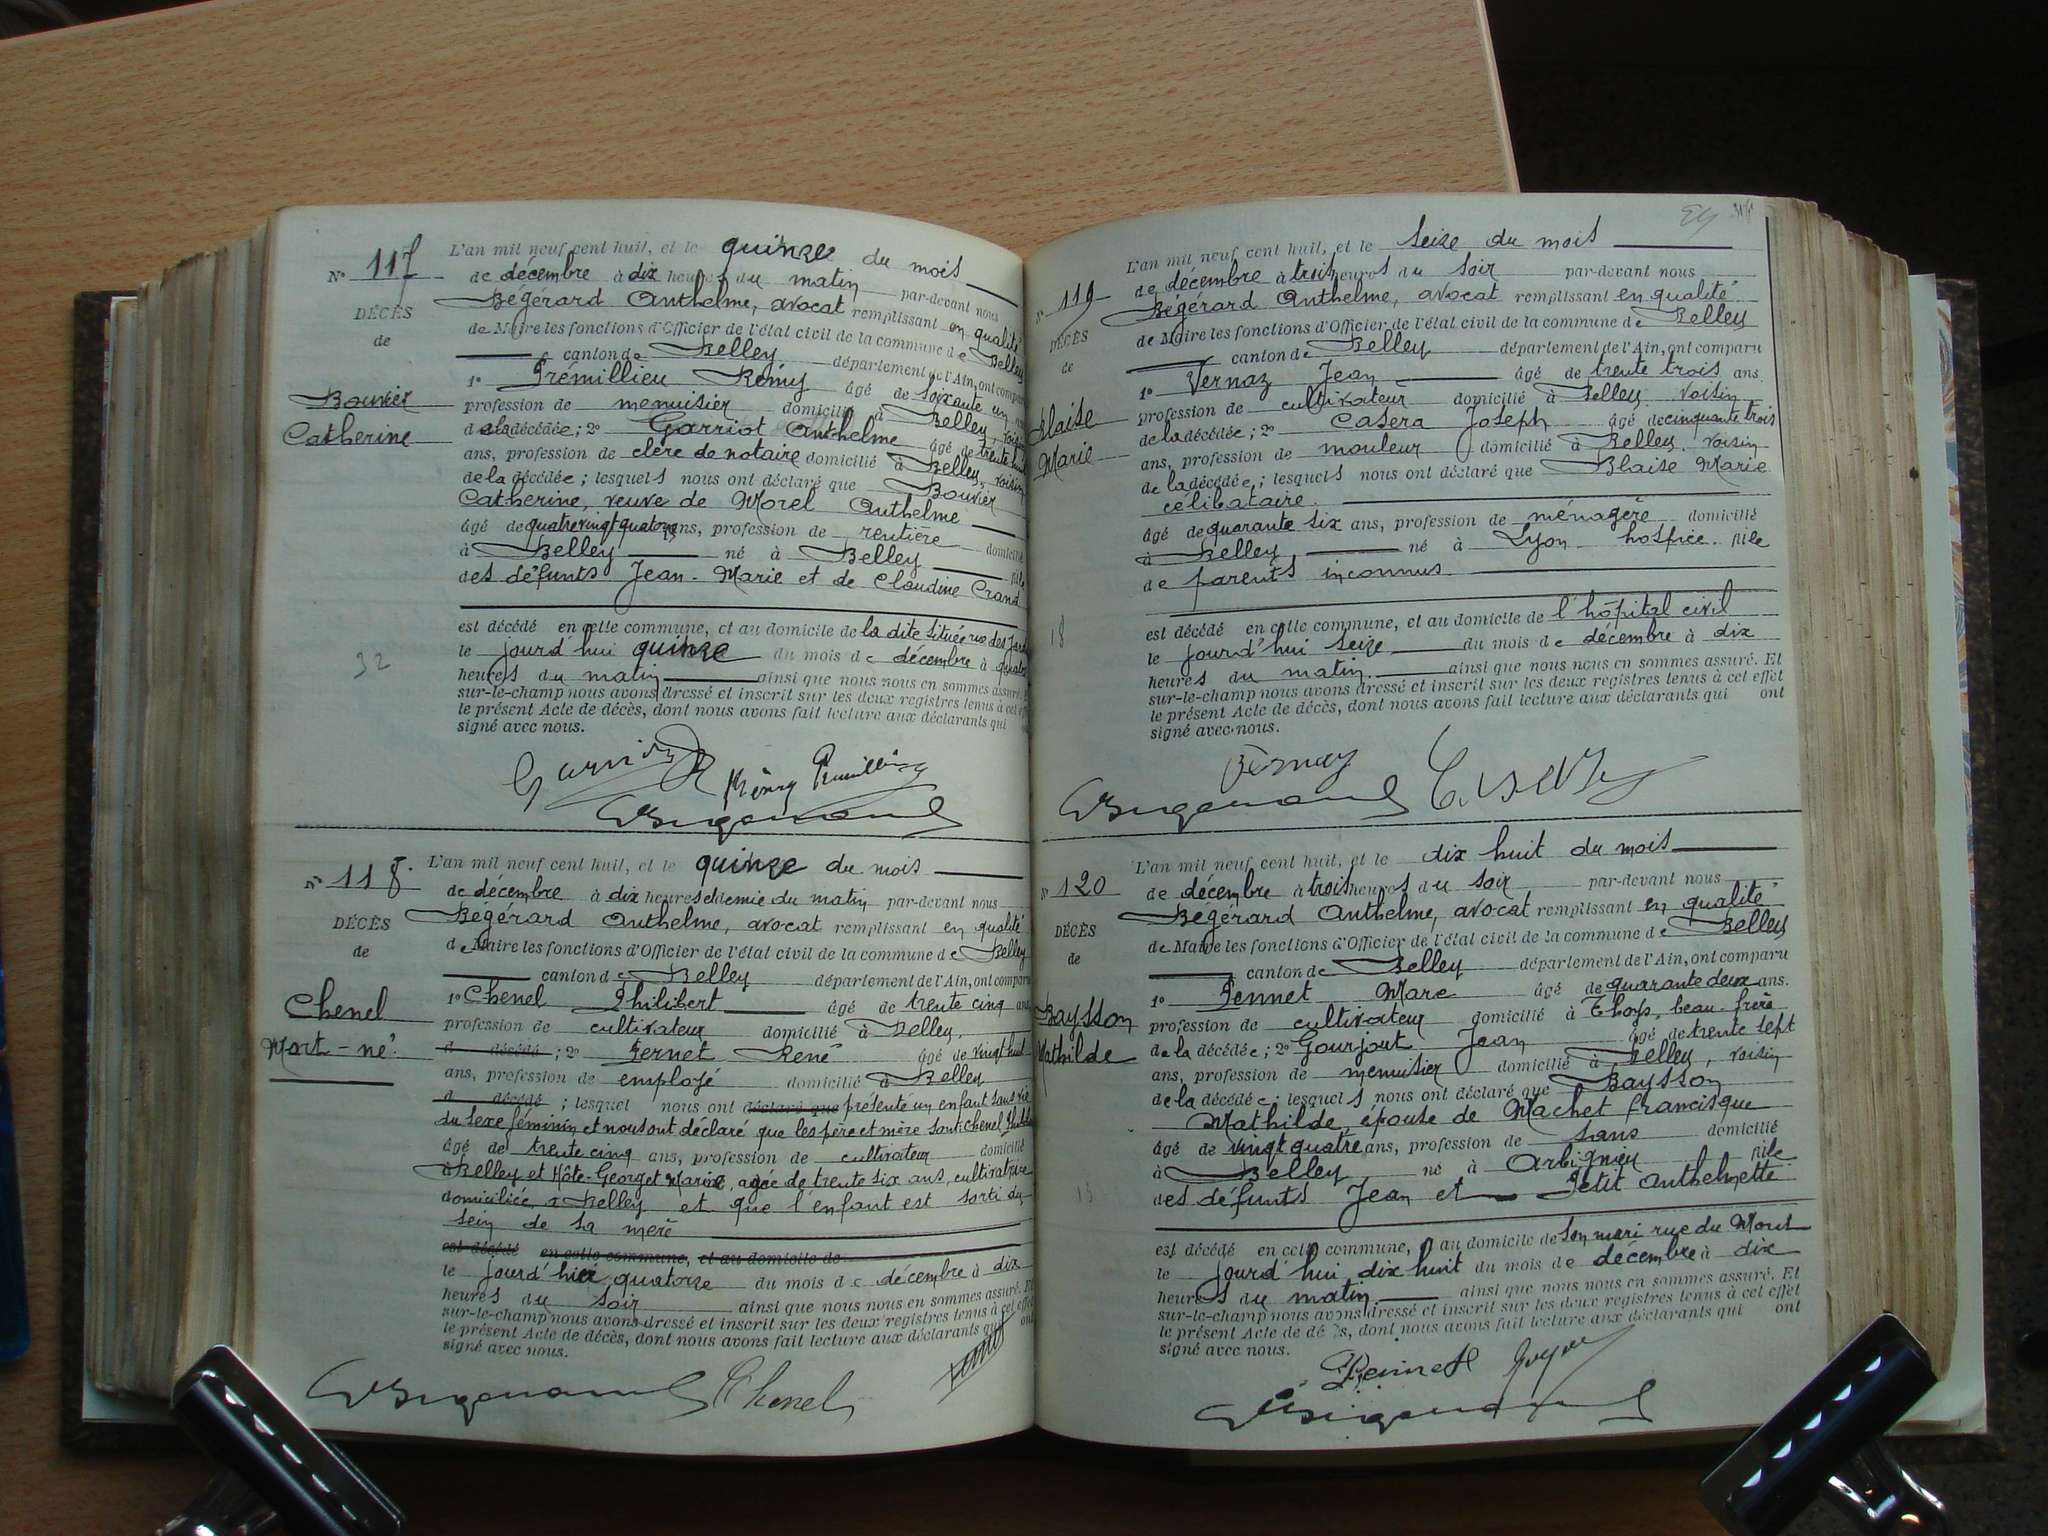 N° 117
DÉCÈS
de
Bouvier
Catherine
32
L'an mil neuf cent huit, et le quinze du mois
de décembre à dix heures du matin par-devant nous
Bégérard Anthelme, avocat remplissant en qualité
de Maire les fonctions d'Officier de l'état civil de la commune de Belley
canton de Belley département de l'Ain, ont comparu
1° Prémillieu Rémy âgé de soixante un ans
profession de menuisier domicilié à Belley, voisin
de la décédée; 2° Garriot Anthelme âgé de trente huit
ans, profession de clerc de notaire domicilié à Belley, voisin
de la décédée; lesquels nous ont déclaré que Bouvier
Catherine, veuve de Morel Anthelme
âgé de quatrevingt quatorze ans, profession de rentière domicilié
à Belley né à Belley fille
des défunts Jean-Marie et de Claudine Crand
est décédé en cette commune, et au domicile de la dite située rue des
le jourd'hui quinze du mois de décembre à quatre
heures du matin ainsi que nous nous en sommes assuré. Et
sur-le-champ nous avons dressé et inscrit sur les deux registres tenus à cet effet
le présent Acte de décès, dont nous avons fait lecture aux déclarants qui
signé avec nous.
N° 118
DÉCÈS
de
Chenel
Mort-né
L'an mil neuf cent huit, et le quinze du mois
de décembre à dix heures et demie du matin par-devant nous
Bégérard Anthelme, avocat remplissant en qualité
de Maire les fonctions d'Officier de l'état civil de la commune de Belley
canton de Belley département de l'Ain, ont comparu
1° Chenel Philibert âgé de trente cinq ans
profession de cultivateur domicilié à Belley.
d décédé; 2° Pernet René âgé de vingt huit
ans, profession de employé domicilié à Belley
d décédé; lesquel nous ont déclaré que présenté un enfant sans vie
du sexe féminin et nous ont déclaré que les père et mère sont: Chenel
âgé de trente cinq ans, profession de cultivateur domicilié
à Belley et Hôte-Georget Marie, agée de trente six ans, cultivatrice
domiciliée à Belley et que l'enfant est sorti du
sein de sa mère
est décédé en cette commune, et au domicile de
le jourd'hier quatorze du mois de décembre à dix
heures du soir ainsi que nous nous en sommes assuré. Et
sur-le-champ nous avons dressé et inscrit sur les deux registres tenus à cet effet
le présent Acte de décès, dont nous avons fait lecture aux déclarants qui ont
signé avec nous.
Chenel
N° 119
DÉCÈS
de
Blaise
Marie
18
L'an mil neuf cent huit, et le seize du mois
de décembre à trois heures du soir par-devant nous
Bégérard Anthelme, avocat remplissant en qualité
de Maire les fonctions d'Officier de l'état civil de la commune de Belley
canton de Belley département de l'Ain, ont comparu
1° Vernaz Jean âgé de trente trois ans
profession de cultivateur domicilié à Belley voisin
de la décédée; 2° Casera Joseph âgé de cinquante trois
ans, profession de mouleur domicilié à Belley, voisin
de la décédée; lesquels nous ont déclaré que Blaise Marie
célibataire.
âgé de quarante six ans, profession de ménagère domicilié
à Belley né à Lyon hospice. fille
de parents inconnus.
est décédé en cette commune, et au domicile de l'hôpital civil
le jourd'hui seize du mois de décembre à dix
heures du matin. ainsi que nous nous en sommes assuré. Et
sur-le-champ nous avons dressé et inscrit sur les deux registres tenus à cet effet
le présent Acte de décès, dont nous avons fait lecture aux déclarants qui ont
signé avec nous.
N° 120
DÉCÈS
de
Baysson
Mathilde
L'an mil neuf cent huit, et le dix huit du mois
de décembre à trois heures du soir par-devant nous
Bégérard Anthelme, avocat remplissant en qualité
de Maire les fonctions d'Officier de l'état civil de la commune de Belley
canton de Belley département de l'Ain, ont comparu
1° Pennet Marc âgé de quarante deux ans.
profession de cultivateur domicilié à Thoys, beau-frère
de la décédée; 2° Gourjout Jean âgé de trente sept
ans, profession de menuisier domicilié à Belley, voisin
de la décédée; lesquels nous ont déclaré que Baysson
Mathilde, épouse de Machet francisque
âgé de vingt quatre ans, profession de sans domicilié
à Belley né à Arbignieu fille
des défunts Jean et Petit Anthelmette
est décédé en cette commune, au domicile de son mari rue du Mont
le jourd'hui dix huit du mois de décembre à dix
heures du matin. ainsi que nous nous en sommes assuré. Et
sur-le-champ nous avons dressé et inscrit sur les deux registres tenus à cet effet
le présent Acte de décès, dont nous avons fait lecture aux déclarants qui ont
signé avec nous.